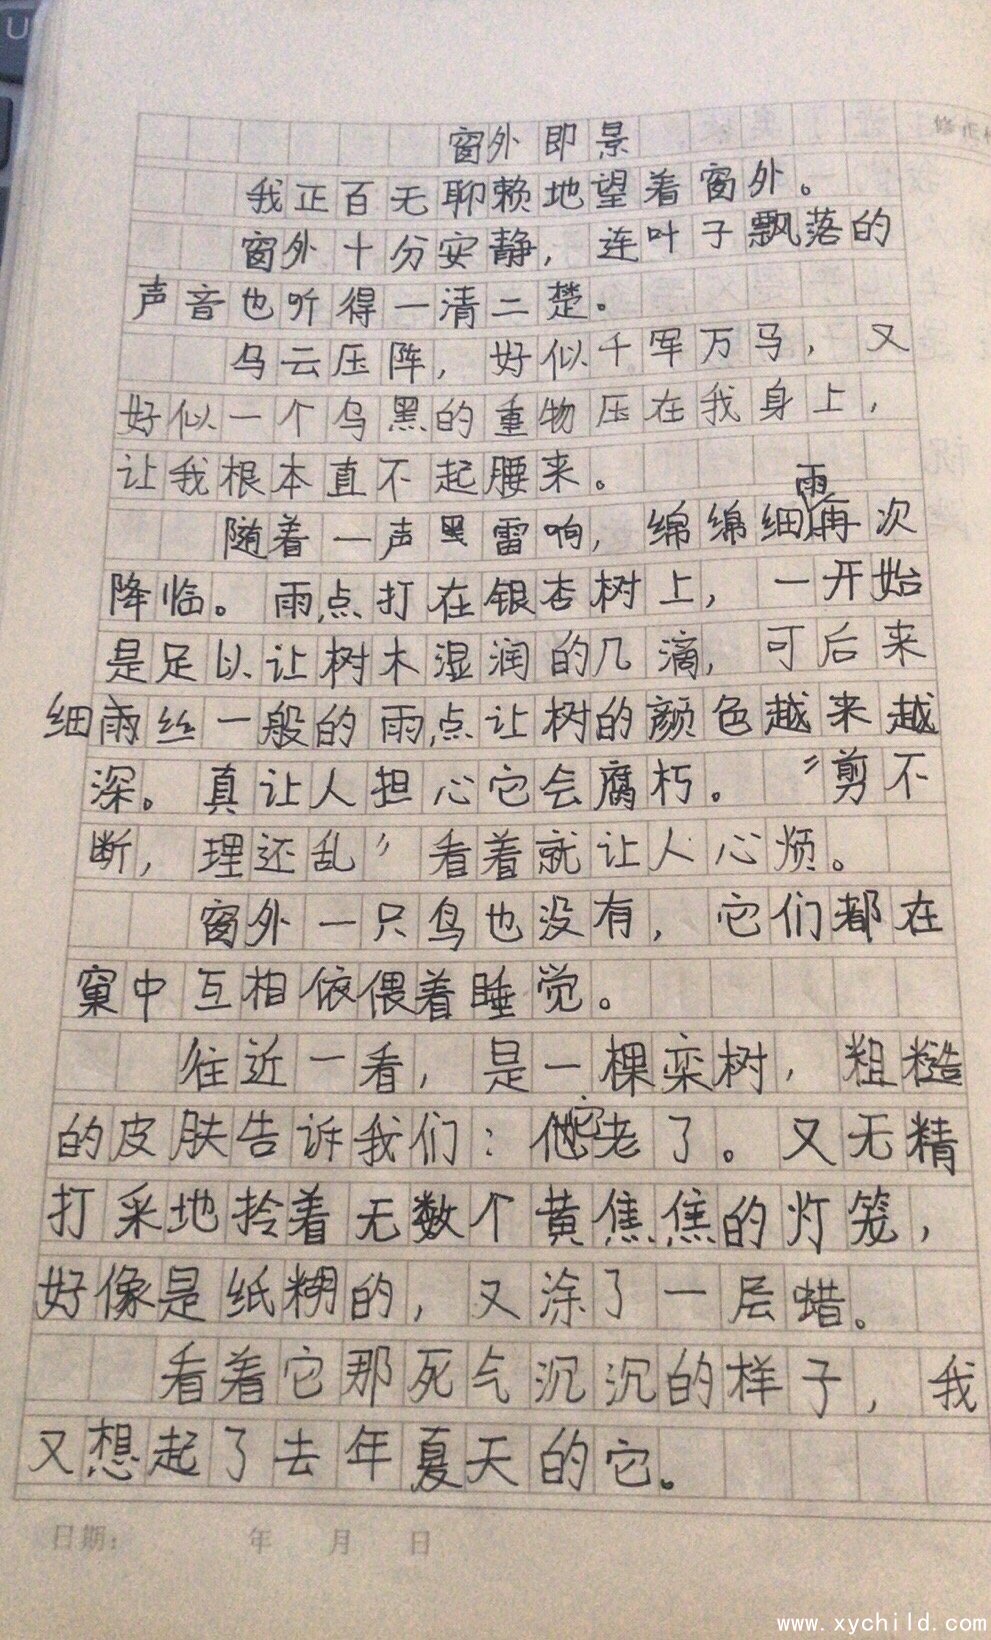 窗外即景
我正百无聊赖地望着窗外。
窗外十分安静，连叶子飘落的
声音也听得一清二楚。
乌云压阵，好似千军万马，又
好似一个乌黑的重物压在我身上，
让我根本直不起腰来。
随着一声黑雷响，绵绵细雨再次
降临。雨点打在银杏树上，一开始
是足以让树木湿润的几滴，可后来
细雨丝一般的雨点让树的颜色越来越
深。真让人担心它会腐朽。“剪不
断，理还乱”看着就让人心烦。
窗外一只鸟也没有，它们都在
窠中互相依偎着睡觉。
往近一看，是一棵栾树，粗糙
的皮肤告诉我们：它老了。又无精
打采地拎着无数个黄焦焦的灯笼，
好像是纸糊的，又涂了一层蜡。
看着它那死气沉沉的样子，我
又想起了去年夏天的它。
日期： 年 月 日
www.xychild.com